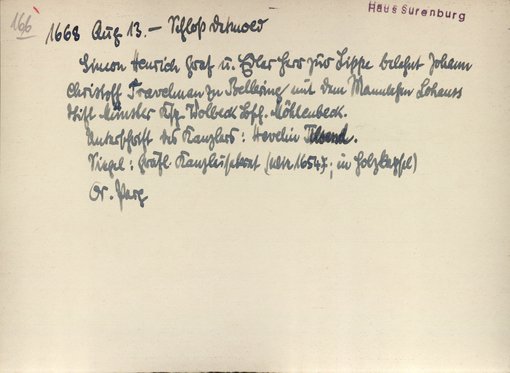 166
Haus Surenburg
1668 Aug 13. – Schloß Detmold
Simon Henrich Graf u. Edler Herr zur Lippe belehnt Johann
Christoff Travelman zu mit dem Mannlehen
Stift Münster Ksp. Wolbeck
Unterschrift des Kanzlers: Hevelin
Siegel: Gräfl. Kanzlei (wie 1654 in Holzkapsel)
Or. Perg